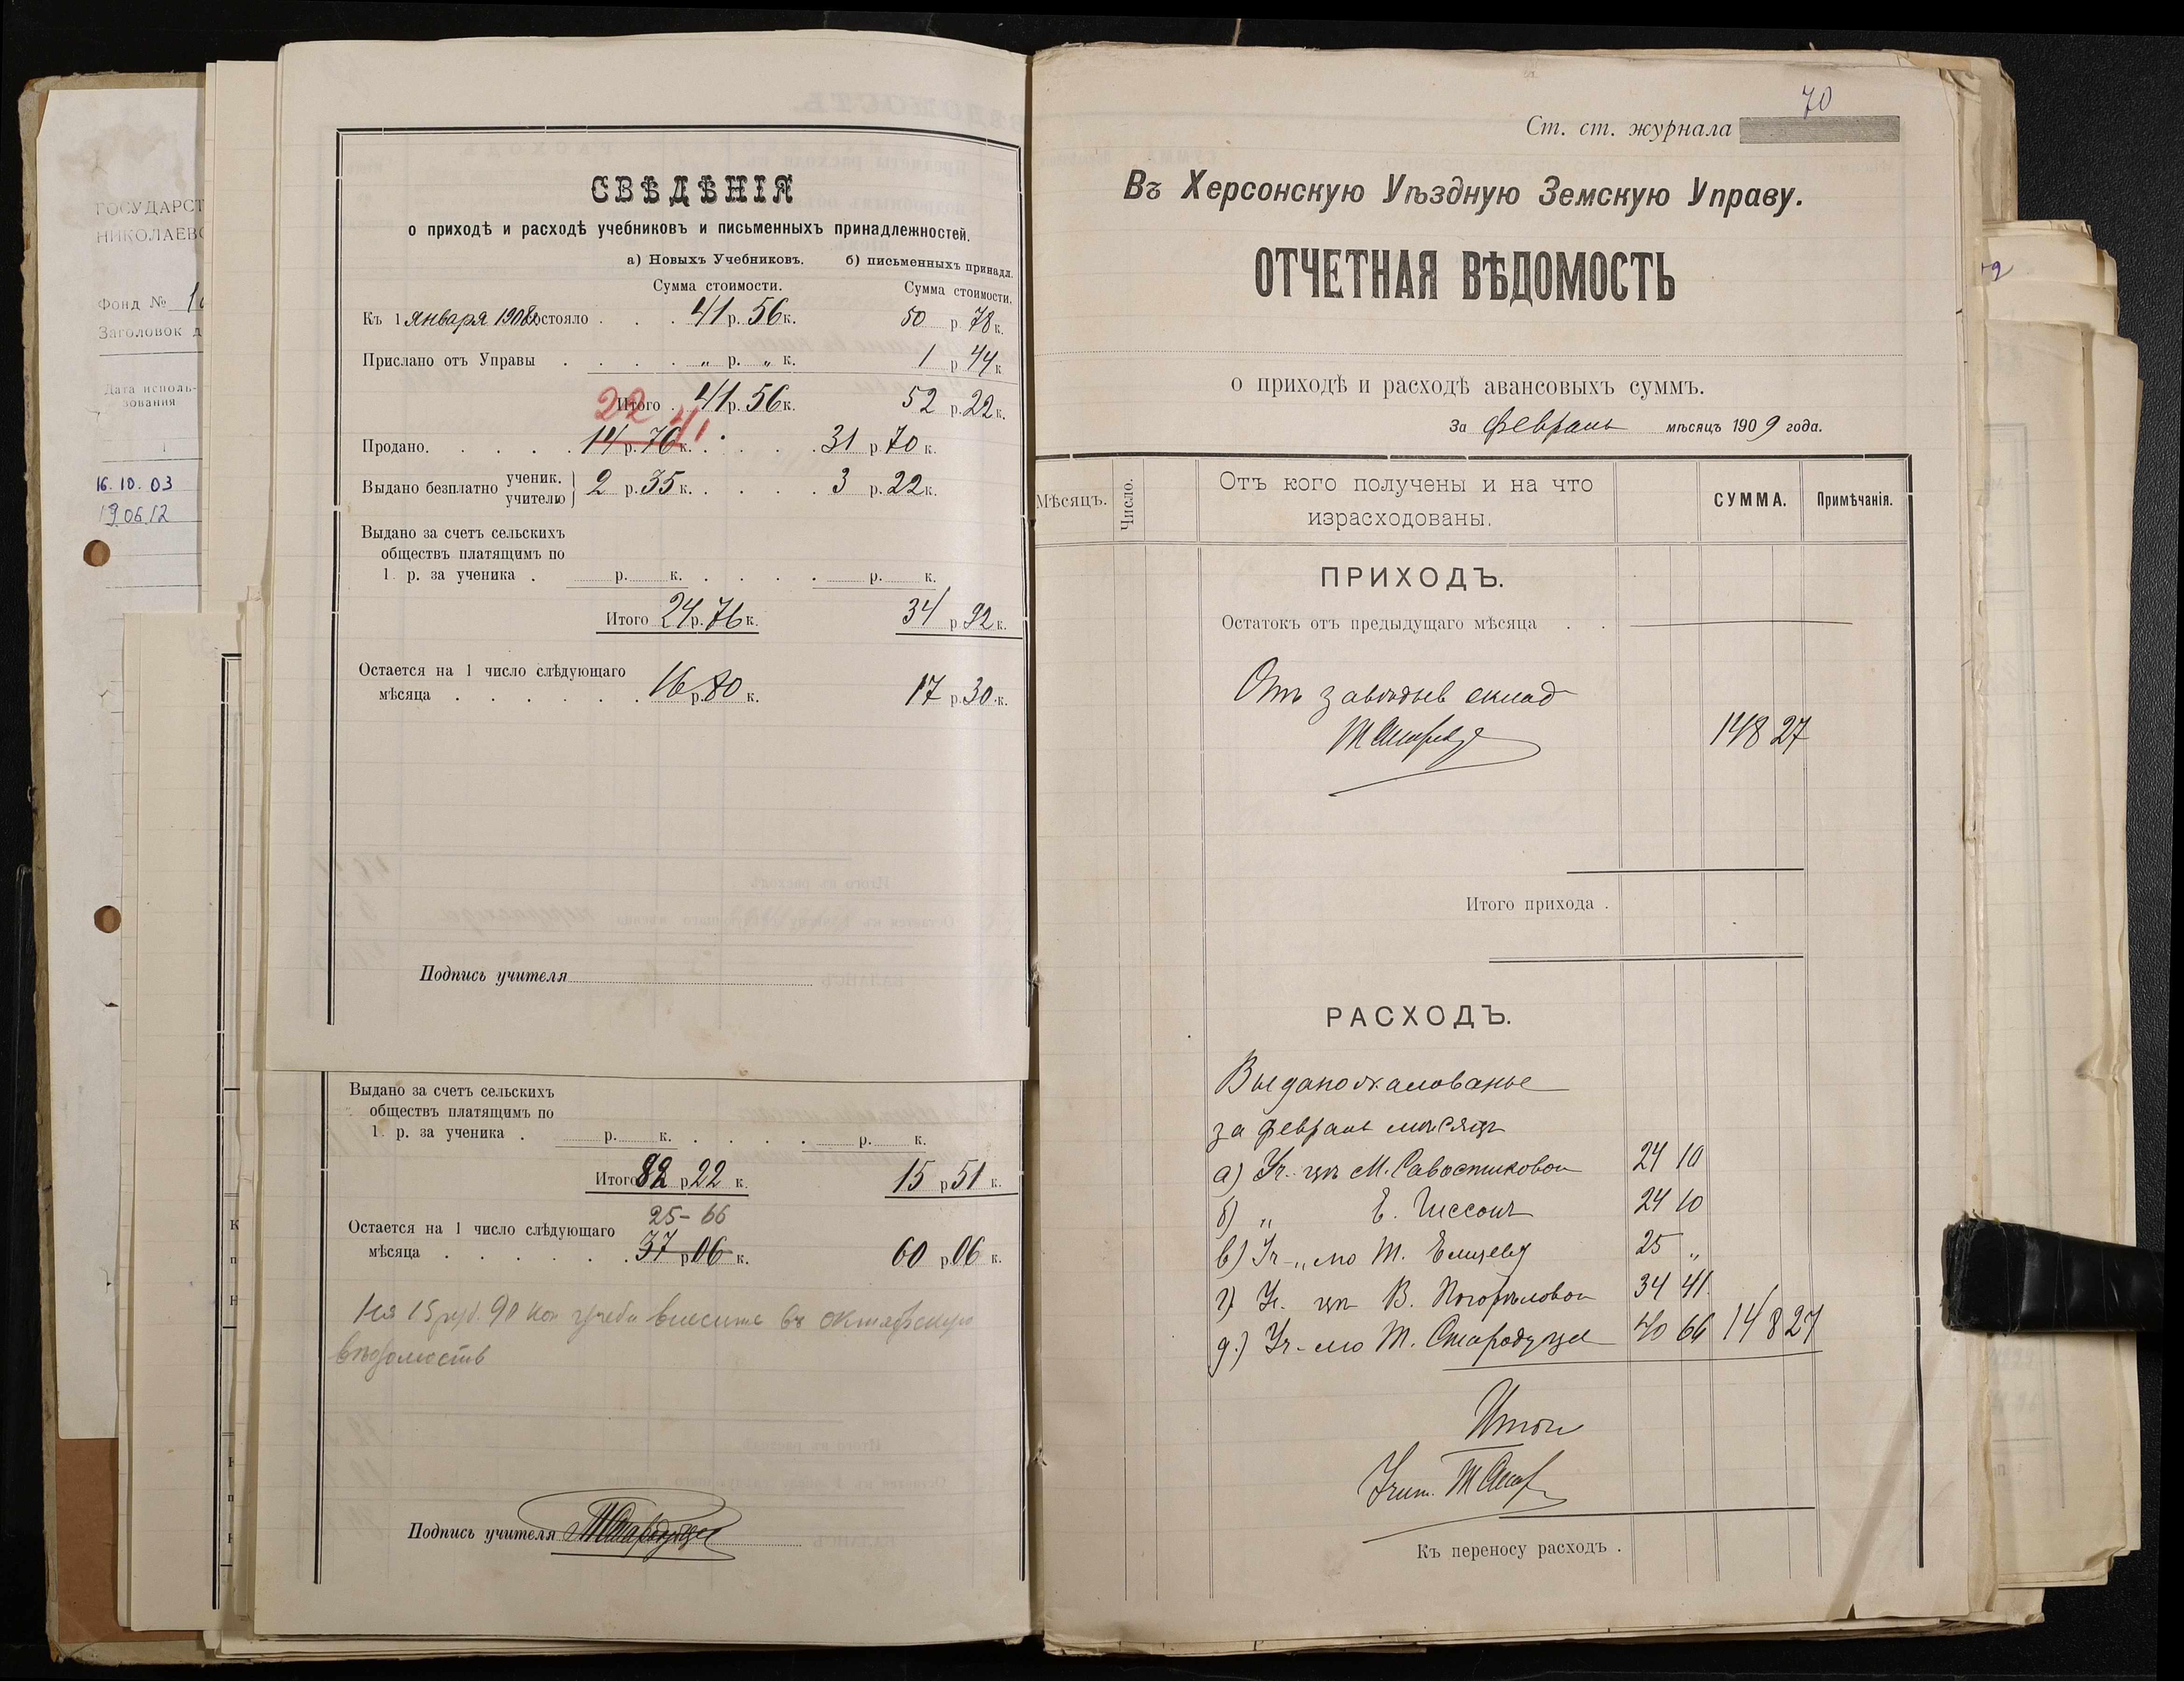 ГОСУДАРСТ
НИКОЛАЕВС
Фонд №
Заголовок д
Дата исполь-
зования
1
16.10.03
19.06.12
СВѢДѢНІЯ
о приходѣ и расходѣ учебниковъ и письменныхъ принадлежностей.
а) Новыхъ Учебниковъ. б) письменныхъ принадл.
Сумма стоимости. Сумма стоимости.
Къ 1 января 1908 состояло . . . 41 р. 56 к. 50 р. 78 к.
Прислано отъ Управы . . . . „ р. „ к. 1 р 44 к
Итого . 41 р. 56 к. 52 р. 22 к.
22 41
Продано. . . . . 14 р. 76 к. . . . . 31 р. 70 к.
Выдано безплатно ученик. учителю } 2 р. 35 к. . . . . 3 р. 22 к.
Выдано за счетъ сельскихъ
обществъ платящимъ по
1 р. за ученика . р. к. . . . . р. к.
Итого 24 р. 76 к. 34 р. 92 к.
Остается на 1 число слѣдующаго
мѣсяца . . . . . . 16 р. 80 к. 17 р. 30 к.
Подпись учителя
Выдано за счетъ сельскихъ
обществъ платящимъ по
1 р. за ученика . р. к. . . . . р. к.
Итого 82 р 22 к. 15 р 51 к.
25-66
Остается на 1 число слѣдующаго
мѣсяца . . . . . . 37 р 06 к. 60 р. 06 к.
15 руб. 90 коп внесите въ октябрьскую
вѣдомость
Подпись учителя ТСтародубцев
70
Ст. ст. журнала
Въ Херсонскую Уѣздную Земскую Управу.
ОТЧЕТНАЯ ВѢДОМОСТЬ
о приходѣ и расходѣ авансовыхъ суммъ.
За Февраль мѣсяцъ 1909 года.
Мѣсяцъ. Число. Отъ кого получены и на что израсходованы. СУММА. Примѣчанія.
ПРИХОДЪ.
Остатокъ отъ предыдущаго мѣсяца . .
Отъ завѣдыв склад
148 27
Итого прихода .
РАСХОДЪ.
Выдано жалованье
за февраль мѣсяцъ
а) Уч-цѣ М. Савостиковой 24 10
б) „ Е. 24 10
в) Уч-лю Т. 25 „
г) Уч. цѣ В. Погорѣловой 34 41
д) Уч-лю Т. 40 66 148 27
Итого
Учит.
Къ переносу расходъ .